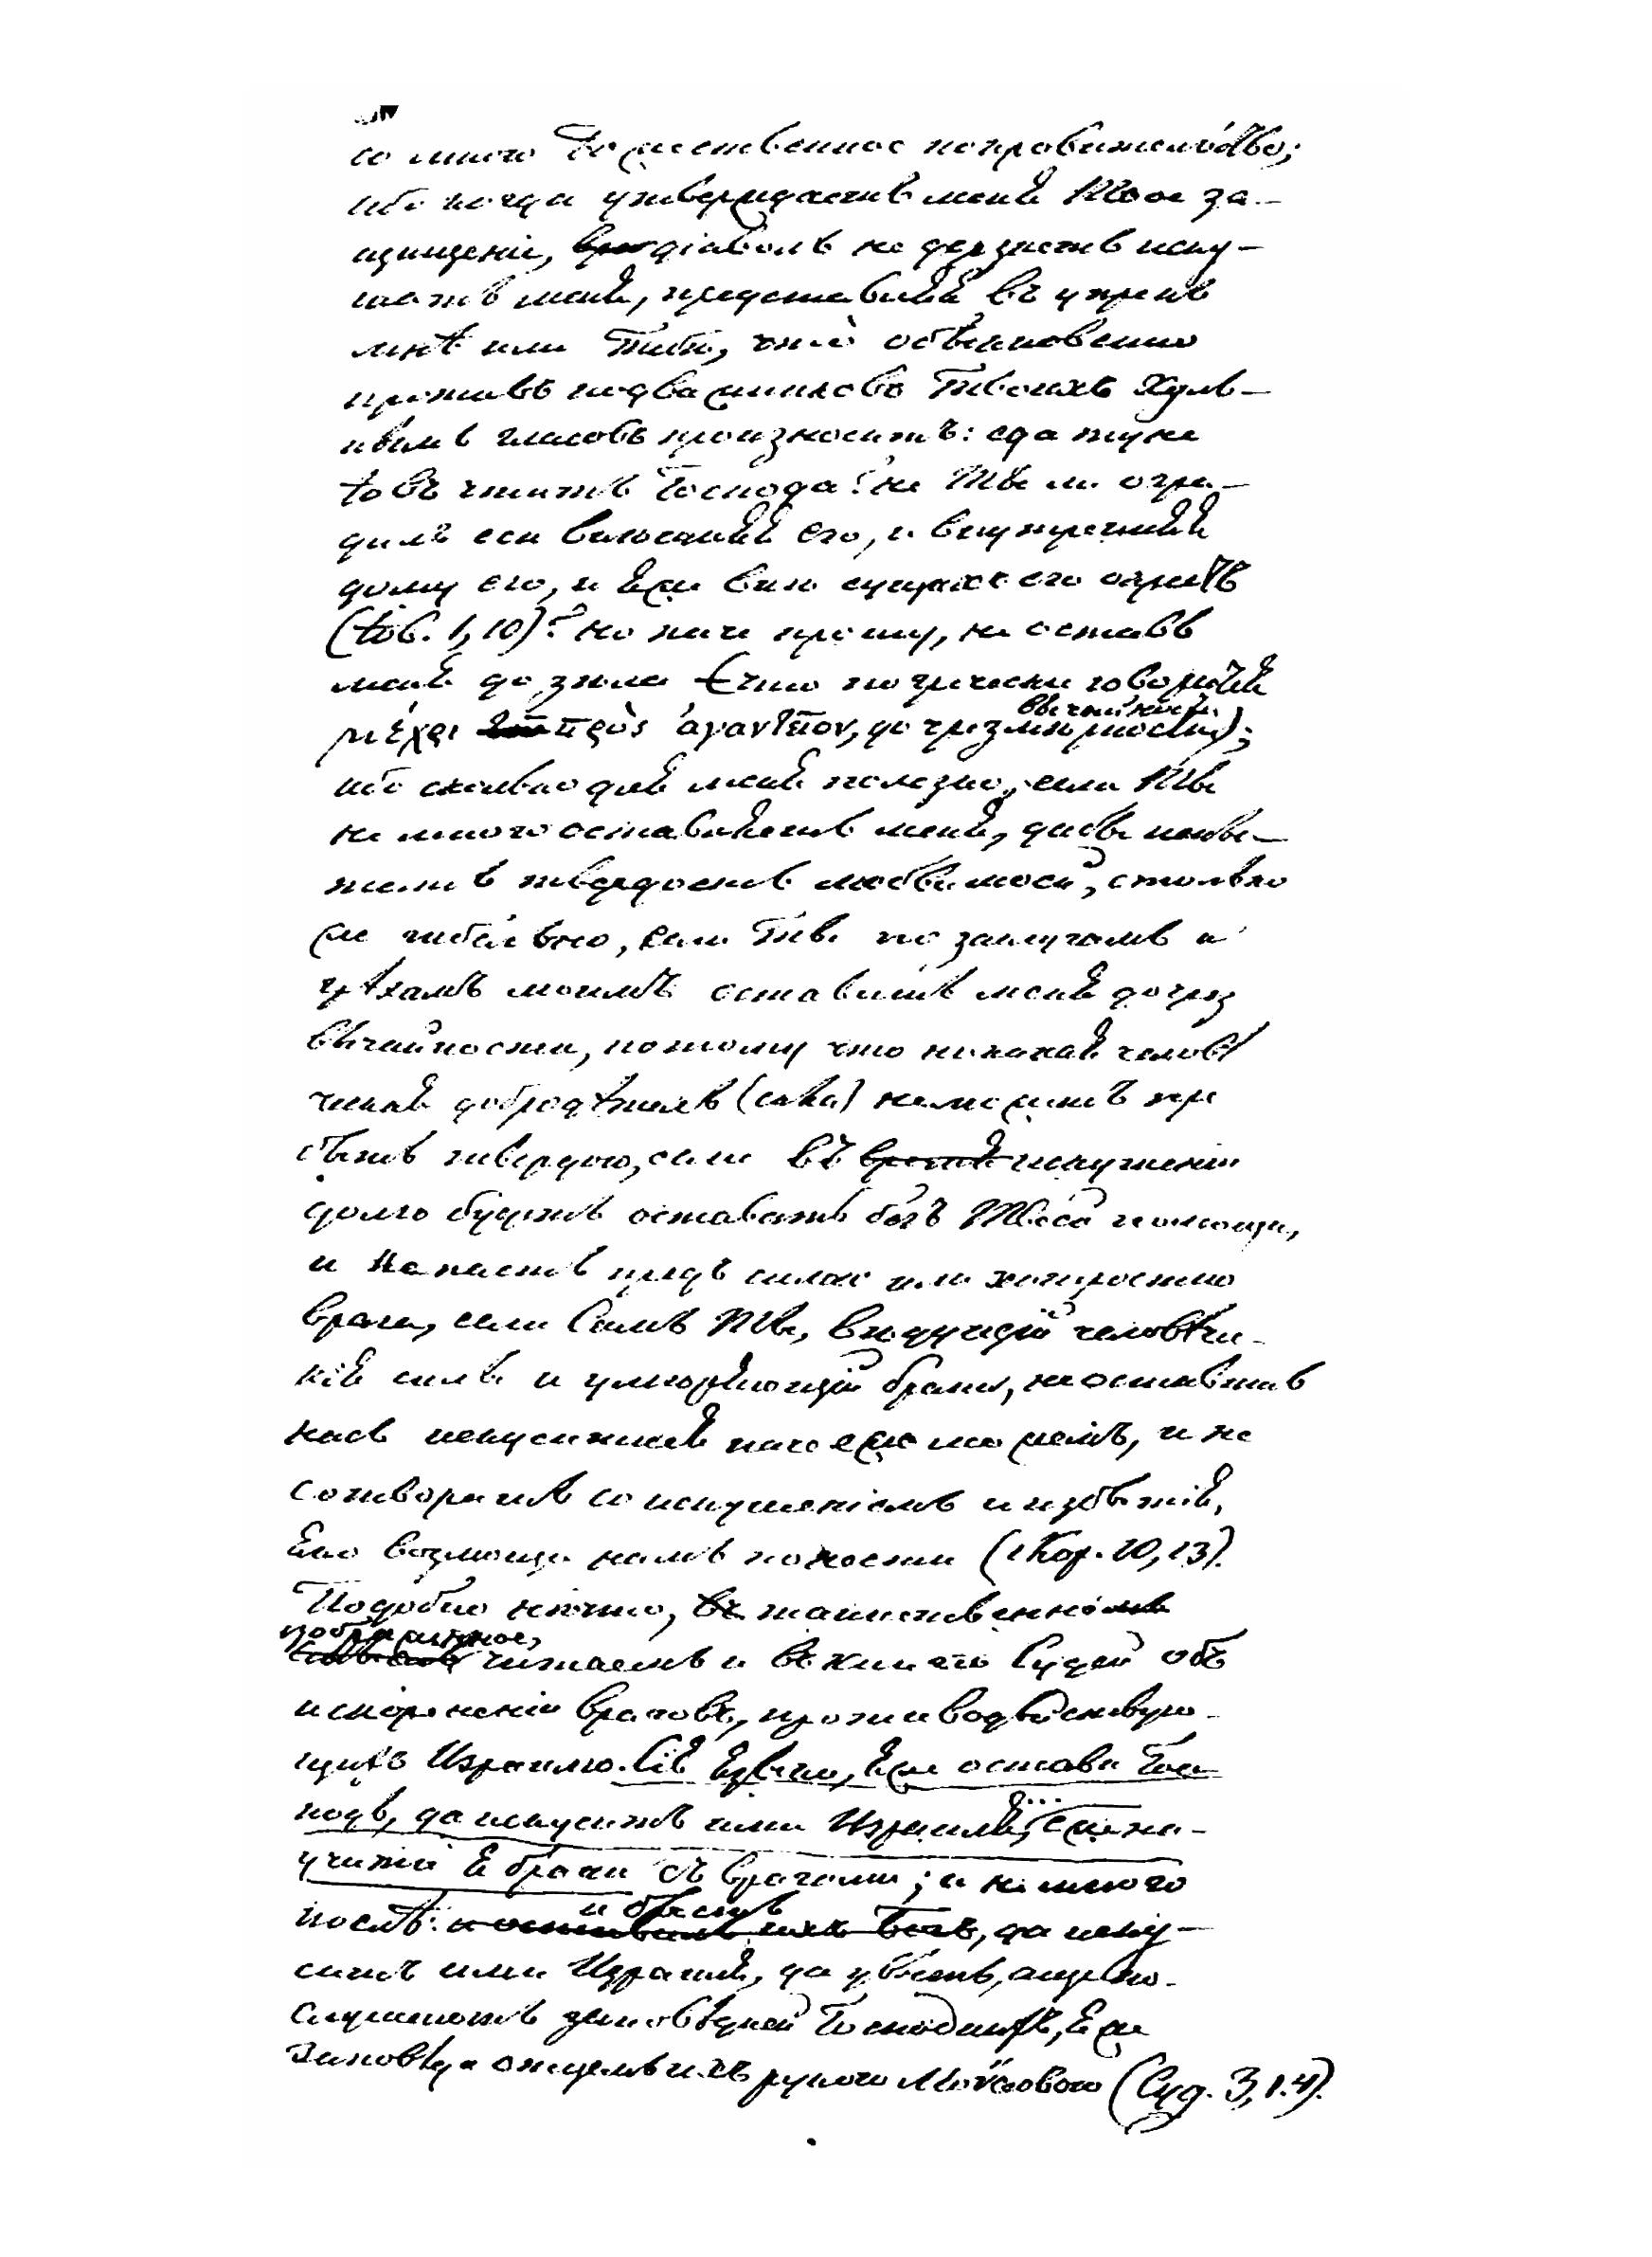 со мною Божественное покровительство;
ибо когда утверждаетъ меня Твое за-
щищеніе, діаволъ не дерзнетъ иску-
шать меня, представляя въ упрекъ
мнѣ или Тебѣ, что обыкновенно
противъ подвижниковъ Твоихъ хуль-
нымъ гласомъ произноситъ: еда туне
Іовъ чтитъ Господа? не Ты ли огра-
дилъ еси внѣшняя его, и внутренняя
дому его, и яже внѣ сущихъ его окрестъ
(Іов. 1, 10)? но паче прошу, не оставь
меня до зѣла (что по гречески говорится
μέχρι πρὸς ἀγαν, до чрезмѣрности);
вычайности
ибо сколько для меня полезно, если Ты
не много оставляешь меня, дабы испы-
тать твердость любви моей, столько
же гибельно, если Ты по заслугамъ и
грѣхамъ моимъ оставишь меня до чрез
вычайности, потому что никакая человѣ
ческая добродѣтель (сила) не можетъ пре
быть твердою, если въ искушеніи
долго будетъ оставаться безъ Твоей помощи,
и не пасть предъ силою или хитростію
врага, если Самъ Ты, вѣдущій человѣче-
кія силы и умѣряющій брани, не оставишь
насъ искуситися паче еже можемъ, и не
сотворишь со искушеніемъ и избытія,
яко возмощи намъ понести (1 Кор. 10, 13).
Подобно нѣчто, таинственно
изображенное,
читаемъ и въ книгѣ Судей объ
искорененіи враговъ, противодѣйствую-
щихъ Израилю. Сія языки, яже остави Гос-
подь, да искуситъ ими Израиля,... еже на-
учити я брани съ врагами; и не много
послѣ: и бысть, да иску-
ситъ ими Израиля, да увѣсть, аще по-
слушаютъ заповѣдей Господнихъ, яже
заповѣда отцемъ ихъ рукою Моѵсеовою (Суд. 3, 1. 4).